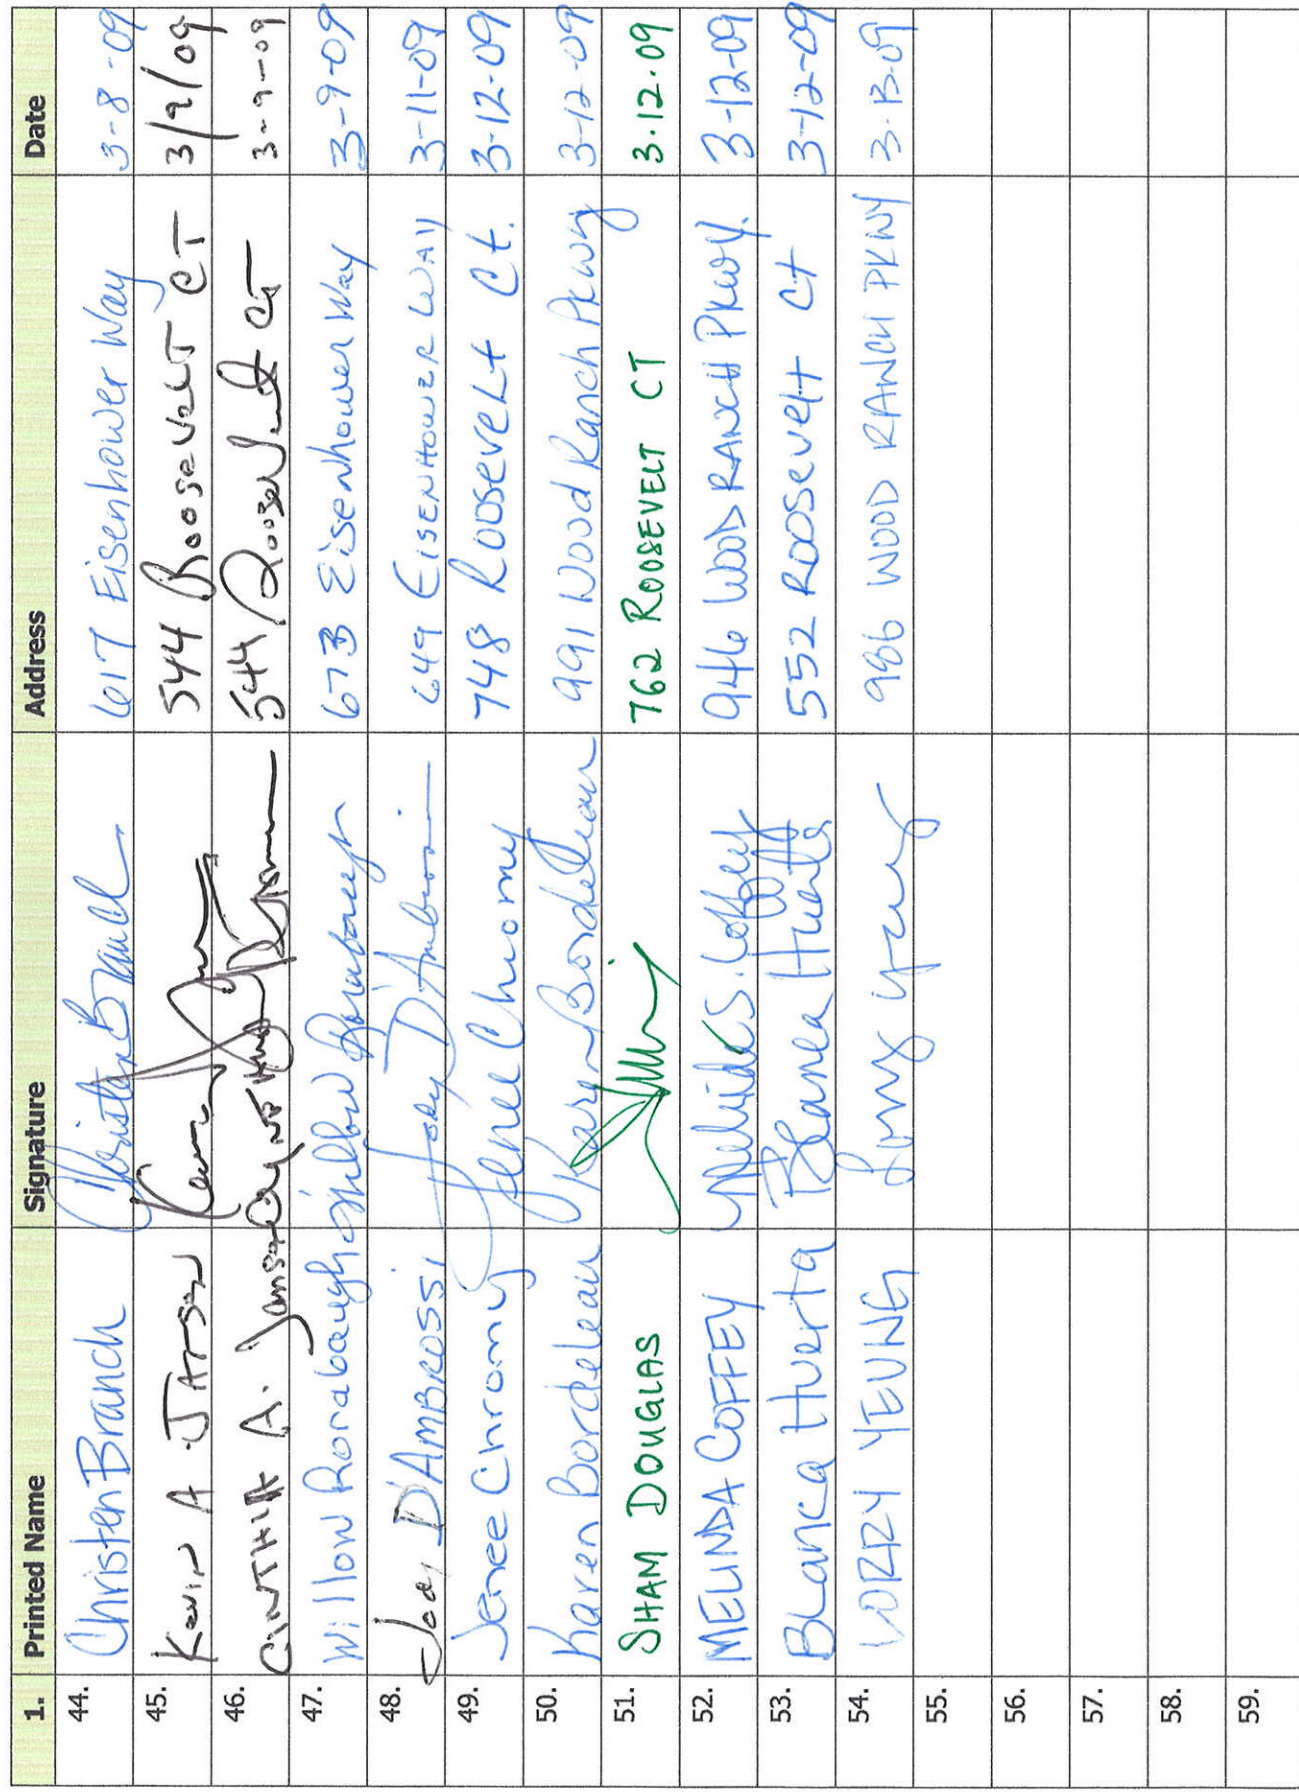 1. Printed Name Signature Address Date
44. Christen Branch Christen Branch 617 Eisenhower Way 3-8-09
45. Kevin A 544 Roosevelt CT 3/9/09
46. A. 544 Roosevelt CT 3-9-09
47. Willow Rorabaugh Willow Rorabaugh 673 Eisenhower Way 3-9-09
48. D'AMBROSSI D'Ambrosi 649 EISENHOWER WAY 3-11-09
49. Jenee Chromy Jenee Chromy 748 Roosevelt Ct. 3-12-09
50. Karen Bordelean Karen Bordelean 991 Wood Ranch Pkwy 3-12-09
51. SHAM DOUGLAS 762 ROOSEVELT CT 3.12.09
52. MELINDA COFFEY Melinda S. Coffey 946 WOOD RANCH PKWY. 3-12-09
53. Blanca Huerta Blanca Huerta 552 Roosevelt Ct 3-12-09
54. YEUNG 986 WOOD RANCH PKWY 3-13-09
55.
56.
57.
58.
59.